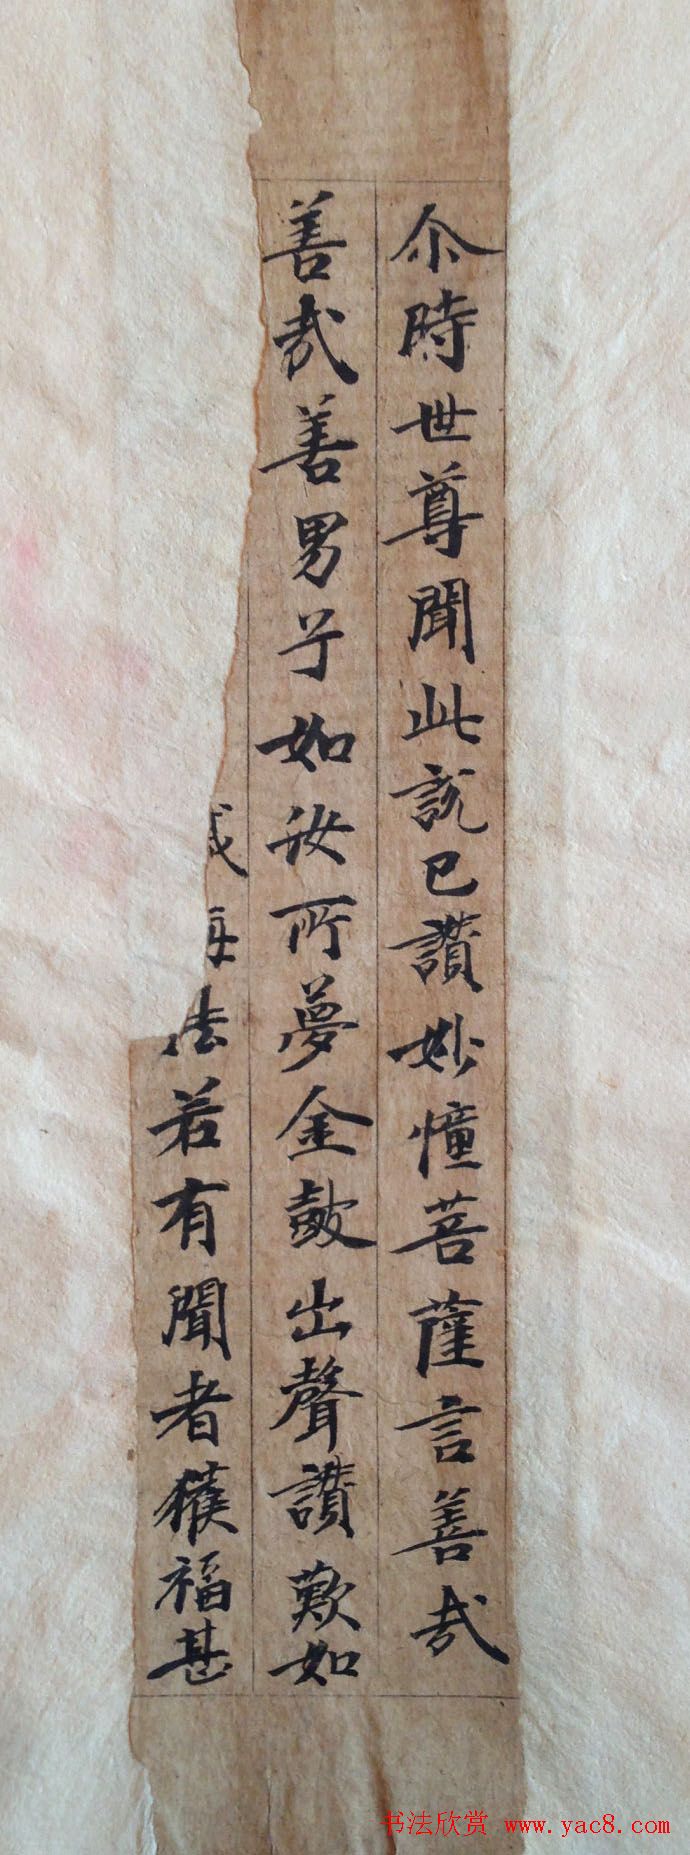 尒時世尊聞此説已讚妙憧菩薩言善㢤
善㢤善男子如汝所夢金皷出聲讚歎如
法若有聞者獲福甚
书法欣赏 www.yac8.com